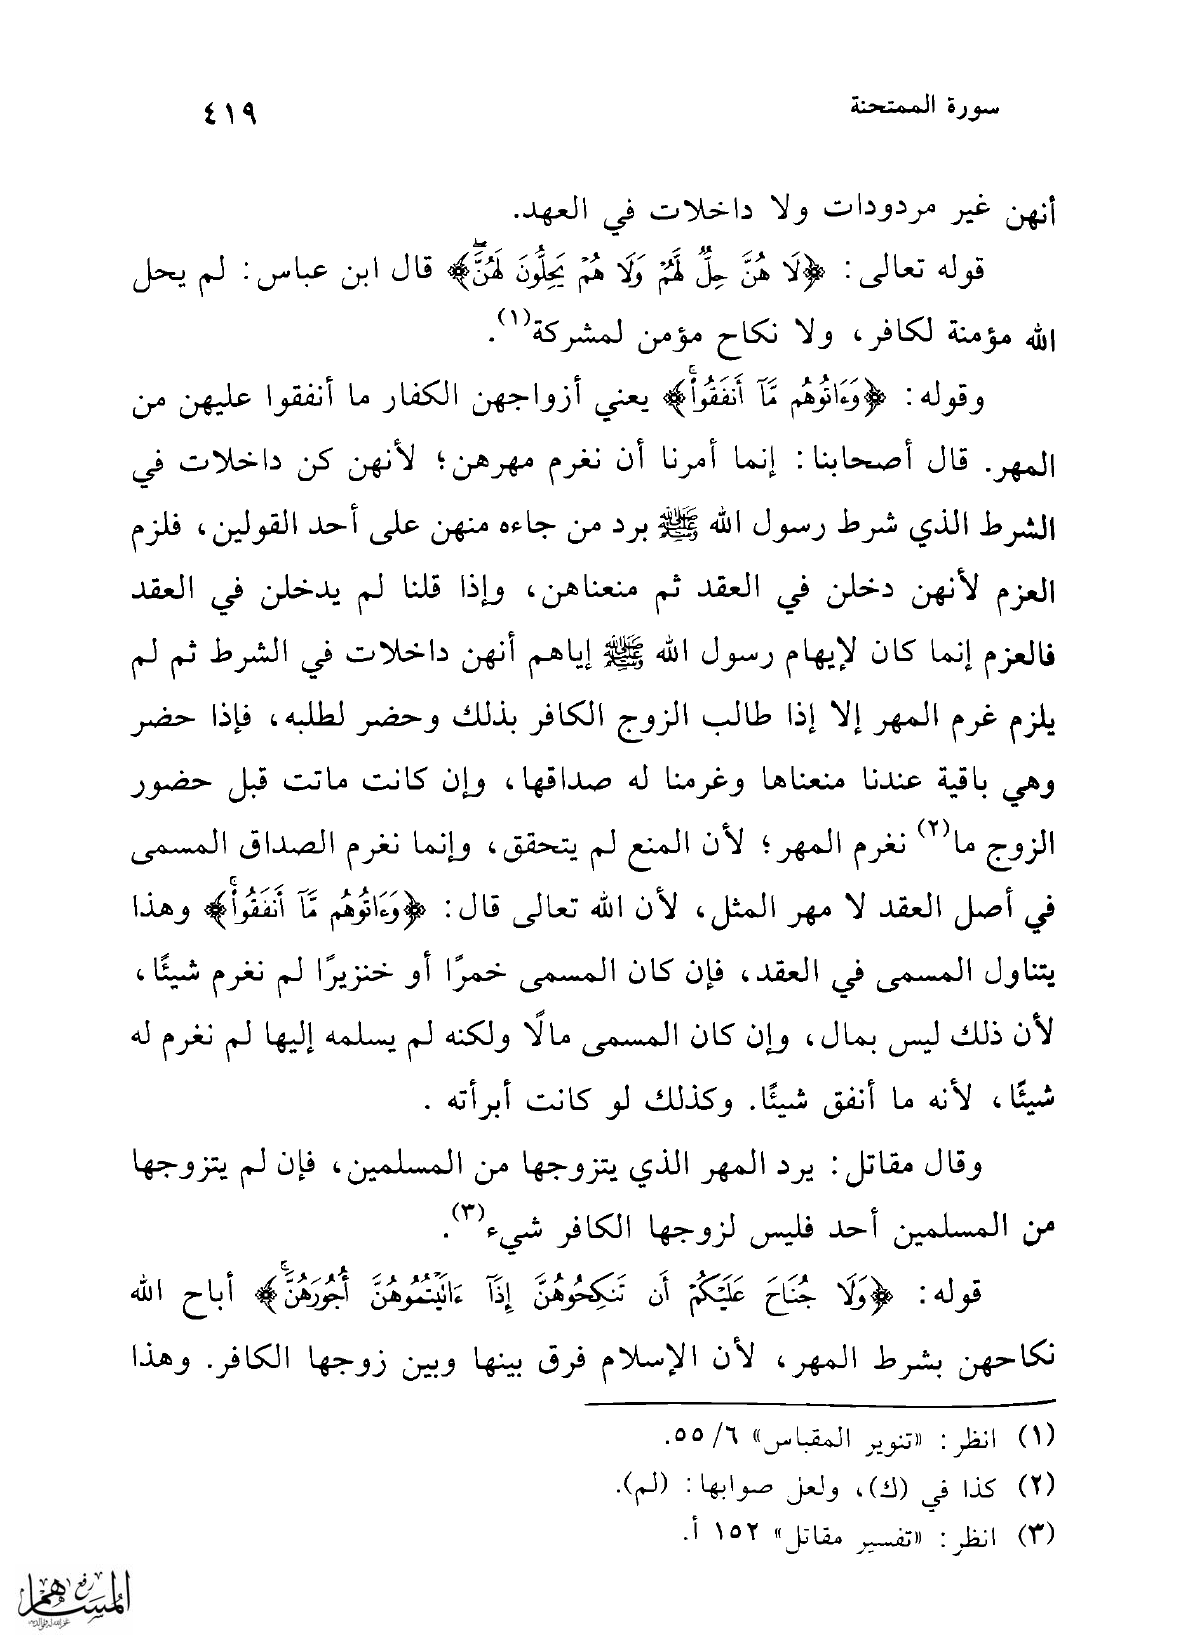 سورة الممتحنة ٤١٩
أنهن غير مردودات ولا داخلات في العهد.
قوله تعالى: ﴿لَا هُنَّ حِلٌّ لَّهُمْ وَلَا هُمْ يَحِلُّونَ لَهُنَّۖ﴾ قال ابن عباس: لم يحل
الله مؤمنة لكافر، ولا نكاح مؤمن لمشركة(١).
وقوله: ﴿وَءَاتُوهُم مَّآ أَنفَقُواْۚ﴾ يعني أزواجهن الكفار ما أنفقوا عليهن من
المهر. قال أصحابنا: إنما أمرنا أن نغرم مهرهن؛ لأنهن كن داخلات في
الشرط الذي شرط رسول الله ﷺ برد من جاءه منهن على أحد القولين، فلزم
العزم لأنهن دخلن في العقد ثم منعناهن، وإذا قلنا لم يدخلن في العقد
فالعزم إنما كان لإيهام رسول الله ﷺ إياهم أنهن داخلات في الشرط ثم لم
يلزم غرم المهر إلا إذا طالب الزوج الكافر بذلك وحضر لطلبه، فإذا حضر
وهي باقية عندنا منعناها وغرمنا له صداقها، وإن كانت ماتت قبل حضور
الزوج ما(٢) نغرم المهر؛ لأن المنع لم يتحقق، وإنما نغرم الصداق المسمى
في أصل العقد لا مهر المثل، لأن الله تعالى قال: ﴿وَءَاتُوهُم مَّآ أَنفَقُواْۚ﴾ وهذا
يتناول المسمى في العقد، فإن كان المسمى خمرًا أو خنزيرًا لم نغرم شيئًا،
لأن ذلك ليس بمال، وإن كان المسمى مالًا ولكنه لم يسلمه إليها لم نغرم له
شيئًا، لأنه ما أنفق شيئًا. وكذلك لو كانت أبرأته .
وقال مقاتل: يرد المهر الذي يتزوجها من المسلمين، فإن لم يتزوجها
من المسلمين أحد فليس لزوجها الكافر شيء(٣).
قوله: ﴿وَلَا جُنَاحَ عَلَيْكُمْ أَن تَنكِحُوهُنَّ إِذَآ ءَاتَيْتُمُوهُنَّ أُجُورَهُنَّۚ﴾ أباح الله
نكاحهن بشرط المهر، لأن الإسلام فرق بينها وبين زوجها الكافر. وهذا
(١) انظر: «تنوير المقباس» ٦/ ٥٥.
(٢) كذا في (ك)، ولعل صوابها: (لم).
(٣) انظر: «تفسير مقاتل» ١٥٢ أ.